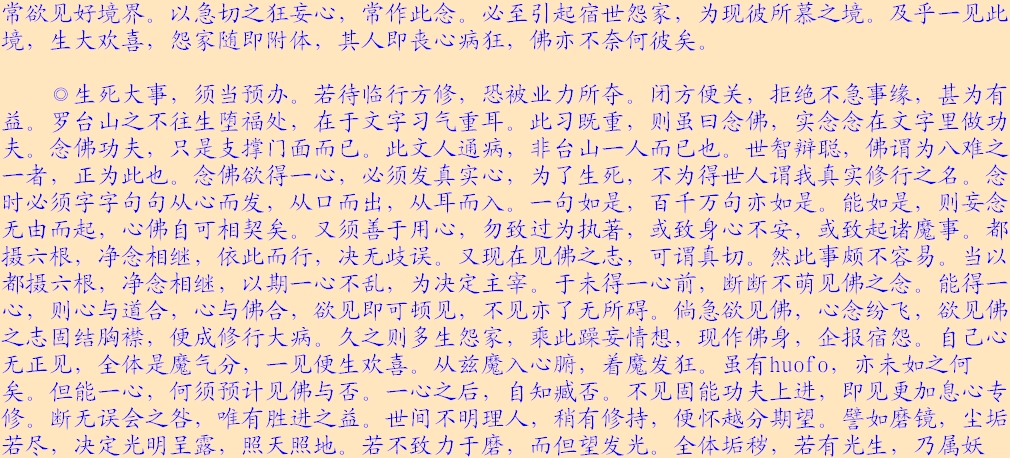 常欲见好境界。以急切之狂妄心，常作此念。必至引起宿世怨家，为现彼所慕之境。及乎一见此
境，生大欢喜，怨家随即附体，其人即丧心病狂，佛亦不奈何彼矣。
◎生死大事，须当预办。若待临行方修，恐被业力所夺。闭方便关，拒绝不急事缘，甚为有
益。罗台山之不往生堕福处，在于文字习气重耳。此习既重，则虽曰念佛，实念念在文字里做功
夫。念佛功夫，只是支撑门面而已。此文人通病，非台山一人而已也。世智辩聪，佛谓为八难之
一者，正为此也。念佛欲得一心，必须发真实心，为了生死，不为得世人谓我真实修行之名。念
时必须字字句句从心而发，从口而出，从耳而入。一句如是，百千万句亦如是。能如是，则妄念
无由而起，心佛自可相契矣。又须善于用心，勿致过为执著，或致身心不安，或致起诸魔事。都
摄六根，净念相继，依此而行，决无歧误。又现在见佛之志，可谓真切。然此事颇不容易。当以
都摄六根，净念相继，以期一心不乱，为决定主宰。于未得一心前，断断不萌见佛之念。能得一
心，则心与道合，心与佛合，欲见即可顿见，不见亦了无所碍。倘急欲见佛，心念纷飞，欲见佛
之志固结胸襟，便成修行大病。久之则多生怨家，乘此躁妄情想，现作佛身，企报宿怨。自己心
无正见，全体是魔气分，一见便生欢喜。从兹魔入心腑，着魔发狂。虽有huofo，亦未如之何
矣。但能一心，何须预计见佛与否。一心之后，自知臧否。不见固能功夫上进，即见更加息心专
修。断无误会之咎，唯有胜进之益。世间不明理人，稍有修持，便怀越分期望。譬如磨镜，尘垢
若尽，决定光明呈露，照天照地。若不致力于磨，而但望发光。全体垢秽，若有光生，乃属妖